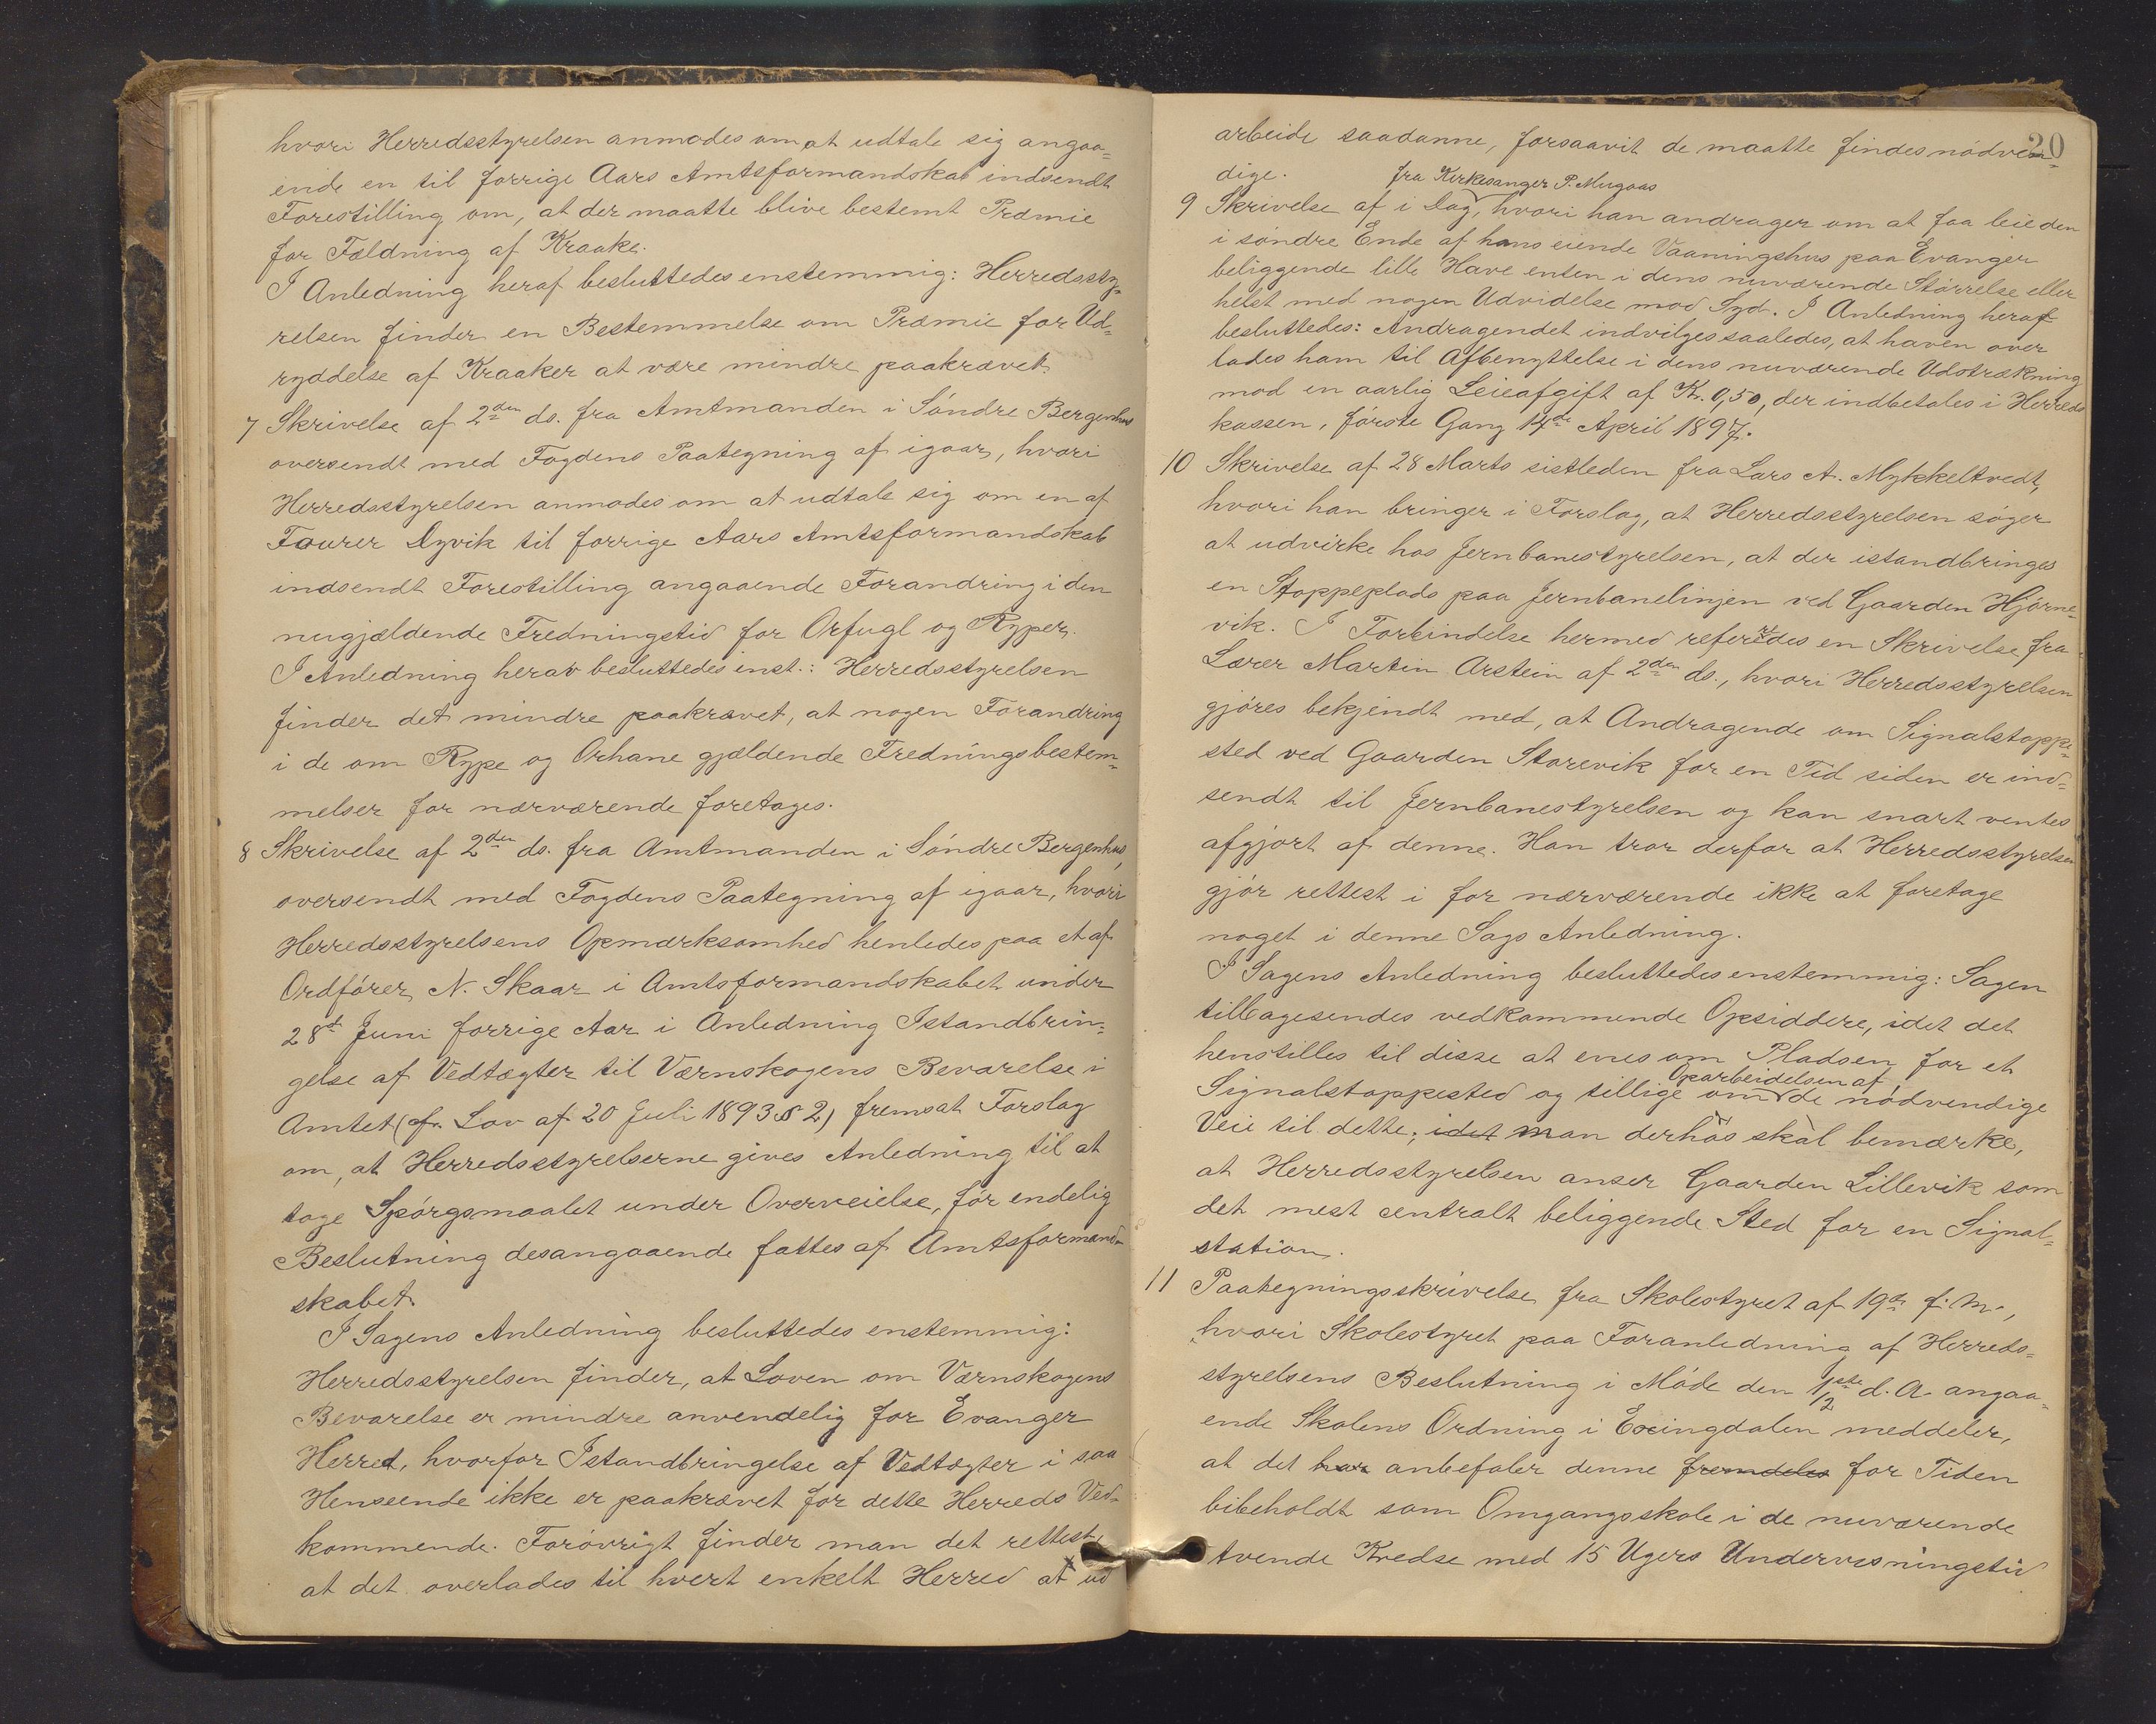 hvori Herredsstyrelsen anmodes om at udtale sig angaa=
ende en til forrige Aars Amtsformandskab indsendt
Forestilling om, at der maatte blive bestemt Præmie
for Fældning af Kraake.
I Anledning heraf besluttedes enstemmig: Herredssty=
relsen finder en Bestemmelse om Præmie for Ud=
ryddelse af Kraaker at være mindre paakrævet.
7 Skrivelse af 2den ds. fra Amtmanden i Söndre Bergenhus
oversendt med Fogdens Paategning af igaar, hvori
Herredsstyrelsen anmodes om at udtale sig om en af
Faurer Dyvik til forrige Aars Amtsformandskab
indsendt Forestilling angaaende Forandring i den
nugjældende Fredningstid for Orfugl og Ryper.
I Anledning herav besluttedes inst.: Herredsstyrelsen
finder det mindre paakrævet, at nogen Forandring
i de om Rype og Orhane gjældende Fredningsbestem=
melser for nærværende foretages.
8 Skrivelse af 2den ds. fra Amtmanden i Söndre Bergenhus,
oversendt med Fogdens Paategning af igaar, hvori
Herredsstyrelsens Opmærksomhed henledes paa et af
Ordförer N. Skaar i Amtsformandskabet under
28de Juni forrige Aar i Anledning Istandbrin=
gelse af Vedtægter til Værnskogens Bevarelse i
Amtet (cfr. Lov af 20 Juli 1893 § 2) fremsat Forslag
om, at Herredsstyrelserne gives Anledning til at
tage Spörgsmaalet under Overveielse, för endelig
Beslutning desangaaende fattes af Amtsformand=
skabet.
I Sagens Anledning besluttedes enstemmig:
Herredsstyrelsen finder, at Loven om Værnskogens
Bevarelse er mindre anvendelig for Evanger
Herred, hvorfor Istandbringelse af Vedtægter i saa
Henseende ikke er paakrævet for dette Herreds Ved=
kommende. Forövrigt finder man det rettest,
at det overlades til hvert enkelt Herred at ud
20
arbeide saadanne, forsaavit de maatte findes nödven=
dige.
fra Kirkesanger P. Mugaas
9 Skrivelse af i Dag, hvori han andrager om at faa leie den
i söndre Ende af hans eiende Vaaningshus paa Evanger
beliggende lille Have enten i dens nuværende Störrelse eller
helst med nogen Udvidelse mod Syd. I Anledning heraf
besluttedes: Andragendet indvilges saaledes, at haven over
lades ham til Afbenyttelse i dens nuværende Udstrækning
mod en aarlig Leieafgift af Kr. 0,50, der indbetales i Herreds
kassen, förste Gang 14de April 1897.
10 Skrivelse af 28 Marts sistleden fra Lars A. Mykkeltvedt,
hvori han bringer i Forslag, at Herredsstyrelsen söger
at udvirke hos Jernbanestyrelsen, at der istandbringes
en Stoppeplads paa Jernbanelinjen ved Gaarden Hjörne=
vik. I Forbindelse hermed refereredes en Skrivelse fra
Lærer Martin Arstein af 2den ds., hvori Herredsstyrelsen
gjöres bekjendt med, at Andragende om Signalstoppe=
sted ved Gaarden Storevik for en Tid siden er ind=
sendt til Jernbanestyrelsen og kan snart ventes
afgjort af denne. Han tror derfor at Herredsstyrelsen
gjör rettest i for nærværende ikke at foretage
noget i denne Sags Anledning.
I Sagens Anledning besluttedes enstemmig: Sagen
tilbagesendes vedkommende Opsiddere, idet det
henstilles til disse at enes om Pladsen for et
Oparbeidelsen af
Signalstoppested og tillige om de nödvendige
Veie til dette; idet man derhos skal bemærke,
at Herredsstyrelsen anser Gaarden Lillevik som
det mest centralt beliggende Sted for en Signal=
station.
11 Paategningsskrivelse fra Skolestyret af 19de f. M.,
hvori Skolestyret paa Foranledning af Herreds=
styrelsens Beslutning i Möde den 1ste/2 d. A. angaa=
ende Skolens Ordning i Exingdalen meddeler,
at det har anbefaler denne fremdeles for Tiden
bibeholdt som Omgangsskole i de nuværende
tvende Kredse med 15 Ugers Undervisningstid